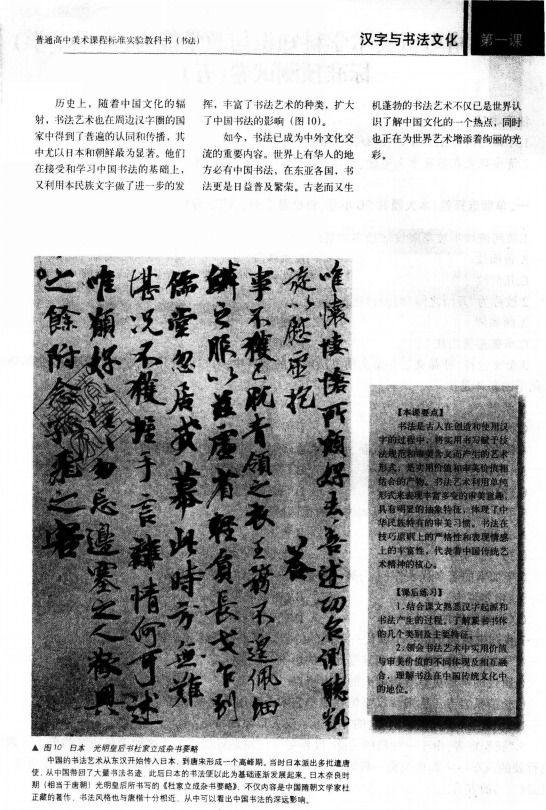 普通高中美术课程标准实验教科书（书法）
汉字与书法文化
第一课
历史上，随着中国文化的辐
射，书法艺术也在周边汉字圈的国
家中得到了普遍的认同和传播，其
中尤以日本和朝鲜最为显著。他们
在接受和学习中国书法的基础上，
又利用本民族文字做了进一步的发
挥，丰富了书法艺术的种类，扩大
了中国书法的影响（图10）。
如今，书法已成为中外文化交
流的重要内容。世界上有华人的地
方必有中国书法，在东亚各国，书
法更是日益普及繁荣。古老而又生
机蓬勃的书法艺术不仅已是世界认
识了解中国文化的一个热点，同时
也正在为世界艺术增添着绚丽的光
彩。
唯懐悽愴所願好去善述功名側聽凱
旋以慰西抱
答
事不獲已脱青領之衣王務不遑佩細
鱗之服以兹虚省輕負長戈乍到
儒堂忽居戎幕此時方無難
堪况不獲捨手言離情何可述
唯願好住勿忘邊塞之人歡與
之餘附念孤飛之客
【本课要点】
书法是古人在创造和使用汉
字的过程中，将实用书写赋于技
法规范和审美含义而产生的艺术
形式，是实用价值和审美价值相
结合的产物。书法艺术利用单纯
形式来表现丰富多变的审美意趣，
具有明显的抽象特征，体现了中
华民族特有的审美习惯。书法在
技巧原则上的严格性和表现情感
上的丰富性，代表着中国传统艺
术精神的核心。
【课后练习】
1.结合课文熟悉汉字起源和
书法产生的过程。了解篆书书体
的几个类别及主要特征。
2.领会书法艺术中实用价值
与审美价值的不同体现及相互融
合，理解书法在中国传统文化中
的地位。
▲ 图10 日本 光明皇后书杜家立成杂书要略
中国的书法艺术从东汉开始传入日本，到唐宋形成一个高峰期。当时日本派出多批遣唐
使，从中国带回了大量书法名迹，此后日本的书法便以此为基础逐渐发展起来。日本奈良时
期（相当于唐朝）光明皇后所书写的《杜家立成杂书要略》，不仅内容是中国隋朝文学家杜
正藏的著作，书法风格也与唐楷十分相近，从中可以看出中国书法的深远影响。